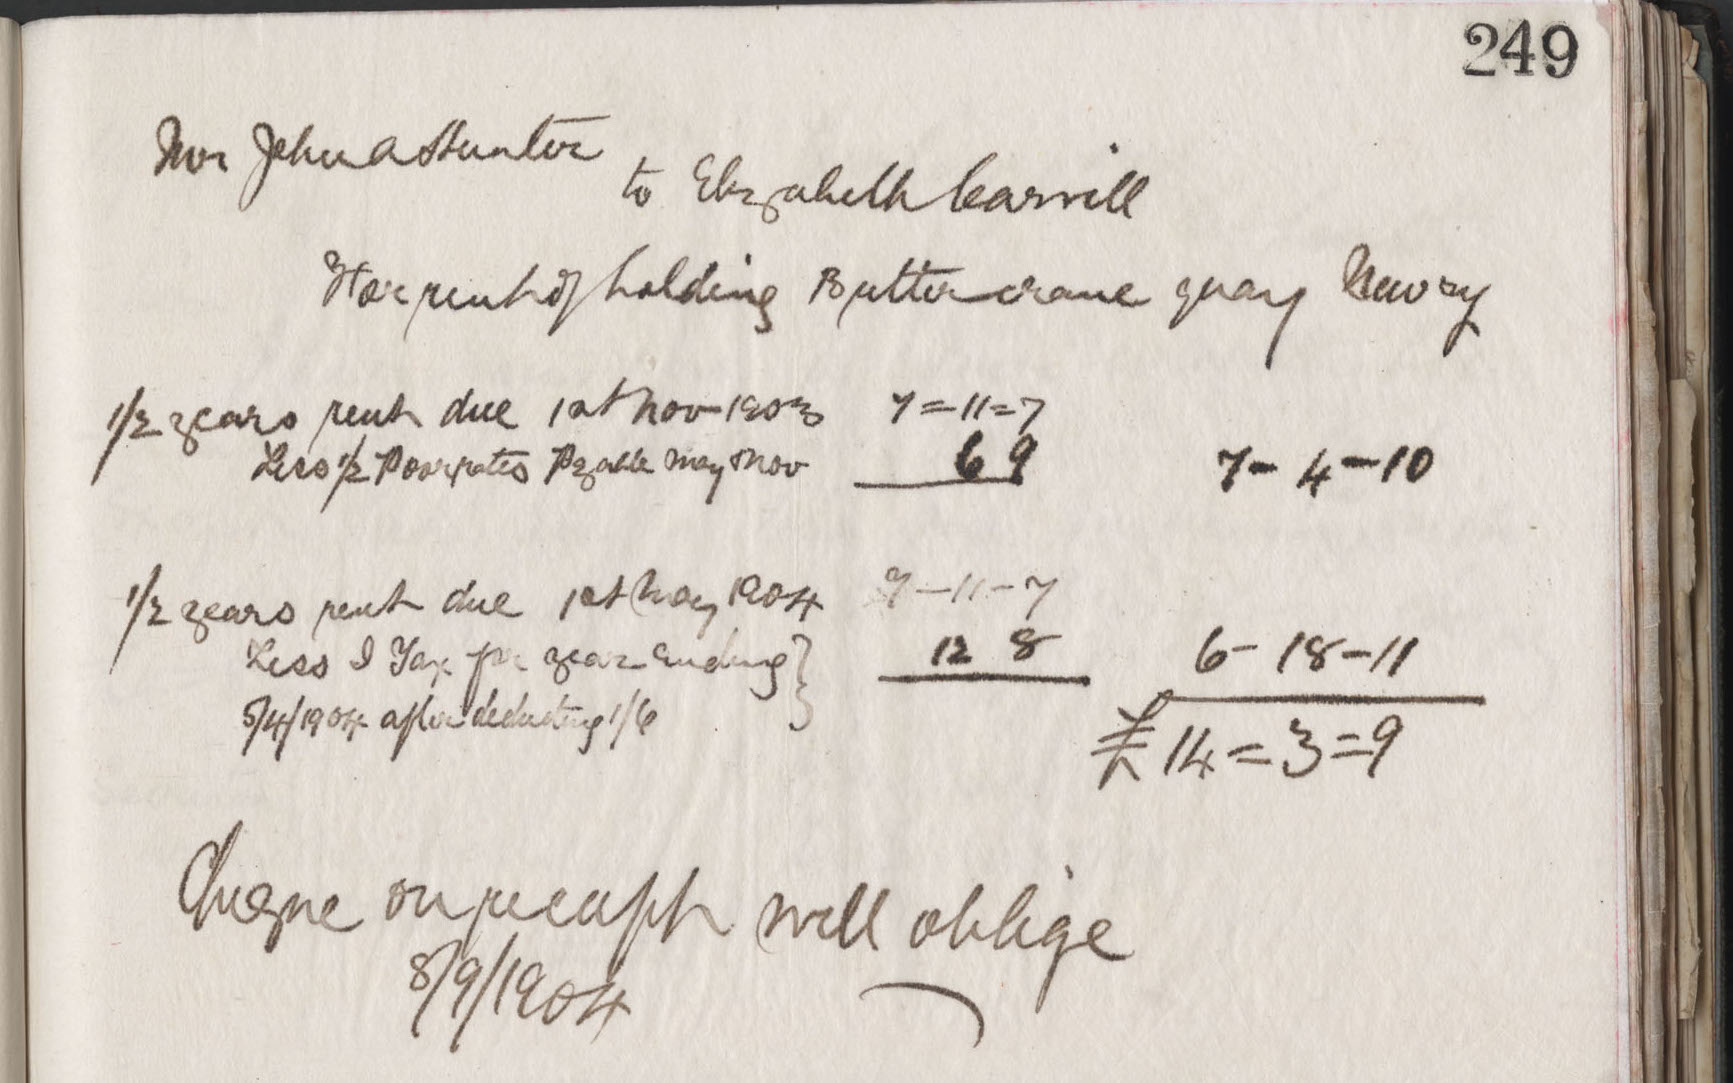 249
Mr John A Hunter
to Elizabeth Carvill
For rent of holding Butter crane quay Newry
1/2 years rent due 1st Nov 1903 7=11=7
Less 1/2 Poor rates Payable May & Nov 6 9 7-4-10
1/2 years rent due 1st May 1904 7-11-7
Less I Tax for year Ending } 12 8 6-18-11
5/4/1904 after deducting 1/6
£14=3=9
Cheque on receipt will oblige
8/9/1904